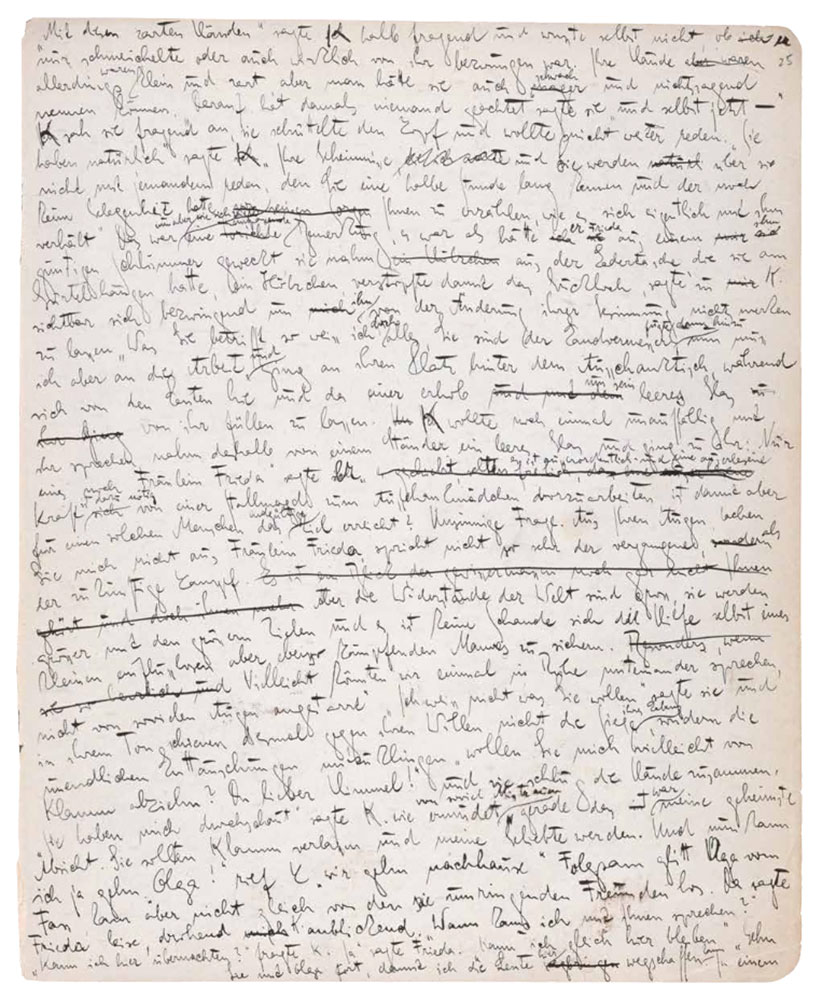 "Mit diesen zarten Händen" sagte K halb fragend und wusste selbst nicht, ob er
nur schmeichelte oder auch wirklich von ihr bezwungen war. Ihre Hände 25
allerdings waren klein und zart aber man hätte sie auch schwach und nichtssagend
nennen können. "Darauf hat damals niemand geachtet sagte sie "und selbst jetzt —"
K sah sie fragend an, sie schüttelte den Kopf und wollte nicht weiter reden. "Sie
haben natürlich" sagte K. "Ihre Geheimnisse und Sie werden über sie
nicht mit jemandem reden, den Sie eine halbe Stunde lang kennen und der noch
keine Gelegenheit hatte Ihnen zu erzählen, wie es sich eigentlich mit ihm
verhält" Das war eine Bemerkung, es war als hätte er Frieda aus einem ihm
günstigen Schlummer geweckt sie nahm aus der Ledertasche die sie am
Gürtel hängen hatte, ein Hölzchen verstopfte damit das Guckloch, sagte zu K.
sichtbar sich bezwingend um ihn von der Änderung ihrer Gesinnung nichts merken
zu lassen "Was Sie betrifft so weiss ich doch alles, Sie sind der Landvermesser" fügte dann hinzu "nun muss
ich aber an die Arbeit" und ging an ihren Platz hinter dem Ausschanktisch, während
sich von den Leuten hie und da einer erhob um sein leeres Glas
von ihr füllen zu lassen. K wollte noch einmal unauffällig mit
ihr sprechen nahm deshalb von einem Ständer ein leeres Glas und ging zu ihr: "Nur
eines noch Fräulein Frieda" sagte er "es ist ausserordentlich und eine auserlesene
Kraft ist dazu nötig von einer Stallmagd zum Ausschankmädchen vorzuarbeiten ist damit aber
für einen solchen Menschen das endgültige Ziel erreicht? Unsinnige Frage. Aus Ihren Augen, lachen
Sie mich nicht aus, Fräulein Frieda spricht nicht so sehr der vergangene, als
der zukünftige Kampf. Es ist
Aber die Widerstände der Welt sind gross, sie werden
grösser mit den grössern Zielen und es ist keine Schande sich die Hilfe selbst eines
kleinen einflusslosen aber ebenso kämpfenden Mannes zu sichern. Besonders, wenn
Vielleicht könnten wir einmal in Ruhe miteinander sprechen,
nicht von sovielen Augen angestarrt" "Ich weiss nicht was Sie wollen" sagte sie und
in ihrem Ton schienen diesmal gegen ihren Willen nicht die Siege ihres Lebens, sondern die
unendlichen Enttäuschungen mitzuklingen "wollen Sie mich vielleicht von
Klamm abziehn? Du lieber Himmel!" und sie schlug die Hände zusammen.
"Sie haben mich durchschaut" sagte K. wie von soviel Misstrauen ermüdet "gerade das war meine geheimste
Absicht. Sie sollten Klamm verlassen und meine Geliebte werden. Und nun kann
ich ja gehn. Olga!" rief K "wir gehn nachhause" Folgsam glitt Olga vom
Fass kam aber nicht gleich von den sie umringenden Freunden los. Da sagte
Frieda leise, drohend K anblickend. "Wann kann ich mit Ihnen sprechen?"
"Kann ich hier übernachten?" fragte K. "Ja" sagte Frieda. "Kann ich gleich hier bleiben" "Gehn
Sie mit Olga fort, damit ich die Leute hier wegschaffen kann In einem